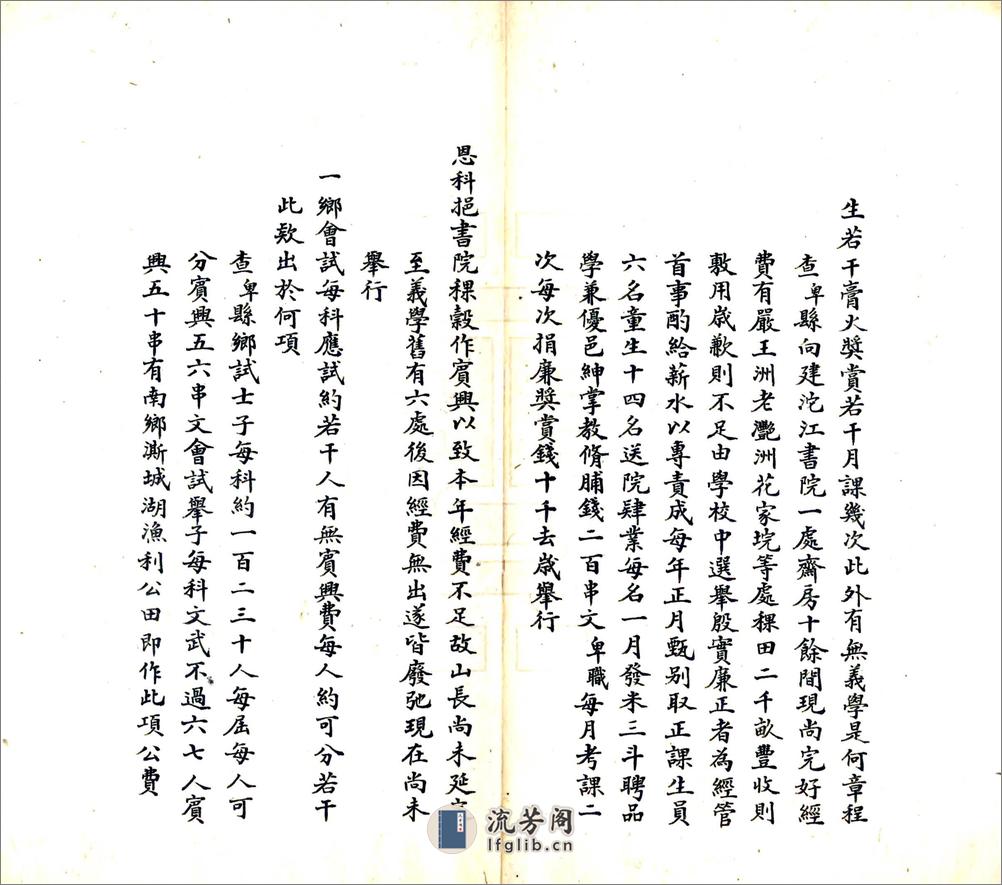 生若干膏火奬賞若干月課幾次此外有無義學是何章程
查卑縣向建沱江書院一處齋房十餘間現尚完好經
費有嚴王洲老灧洲花家垸等處稞田二千畝豐收則
敷用歲歉則不足由學校中選舉殷實廉正者為經管
首事酌給薪水以專責成每年正月甄别取正課生員
六名童生十四名送院肄業每名一月發米三斗聘品
學兼優邑紳掌教脩脯錢二百串文卑職每月考課二
次每次捐廉奬賞錢十千去歲舉行
恩科挹書院稞穀作賓興以致本年經費不足故山長尚未延
至義學舊有六處後因經費無出遂皆廢弛現在尚未
舉行
一鄉會試每科應試約若干人有無賓興費每人約可分若干
此欵出於何項
查卑縣鄉試士子每科約一百二三十人每屆每人可
分賓興五六串文會試舉子每科文武不過六七人賓
興五十串有南鄉澌城湖漁利公田即作此項公費
流芳阁
lfglib.cn